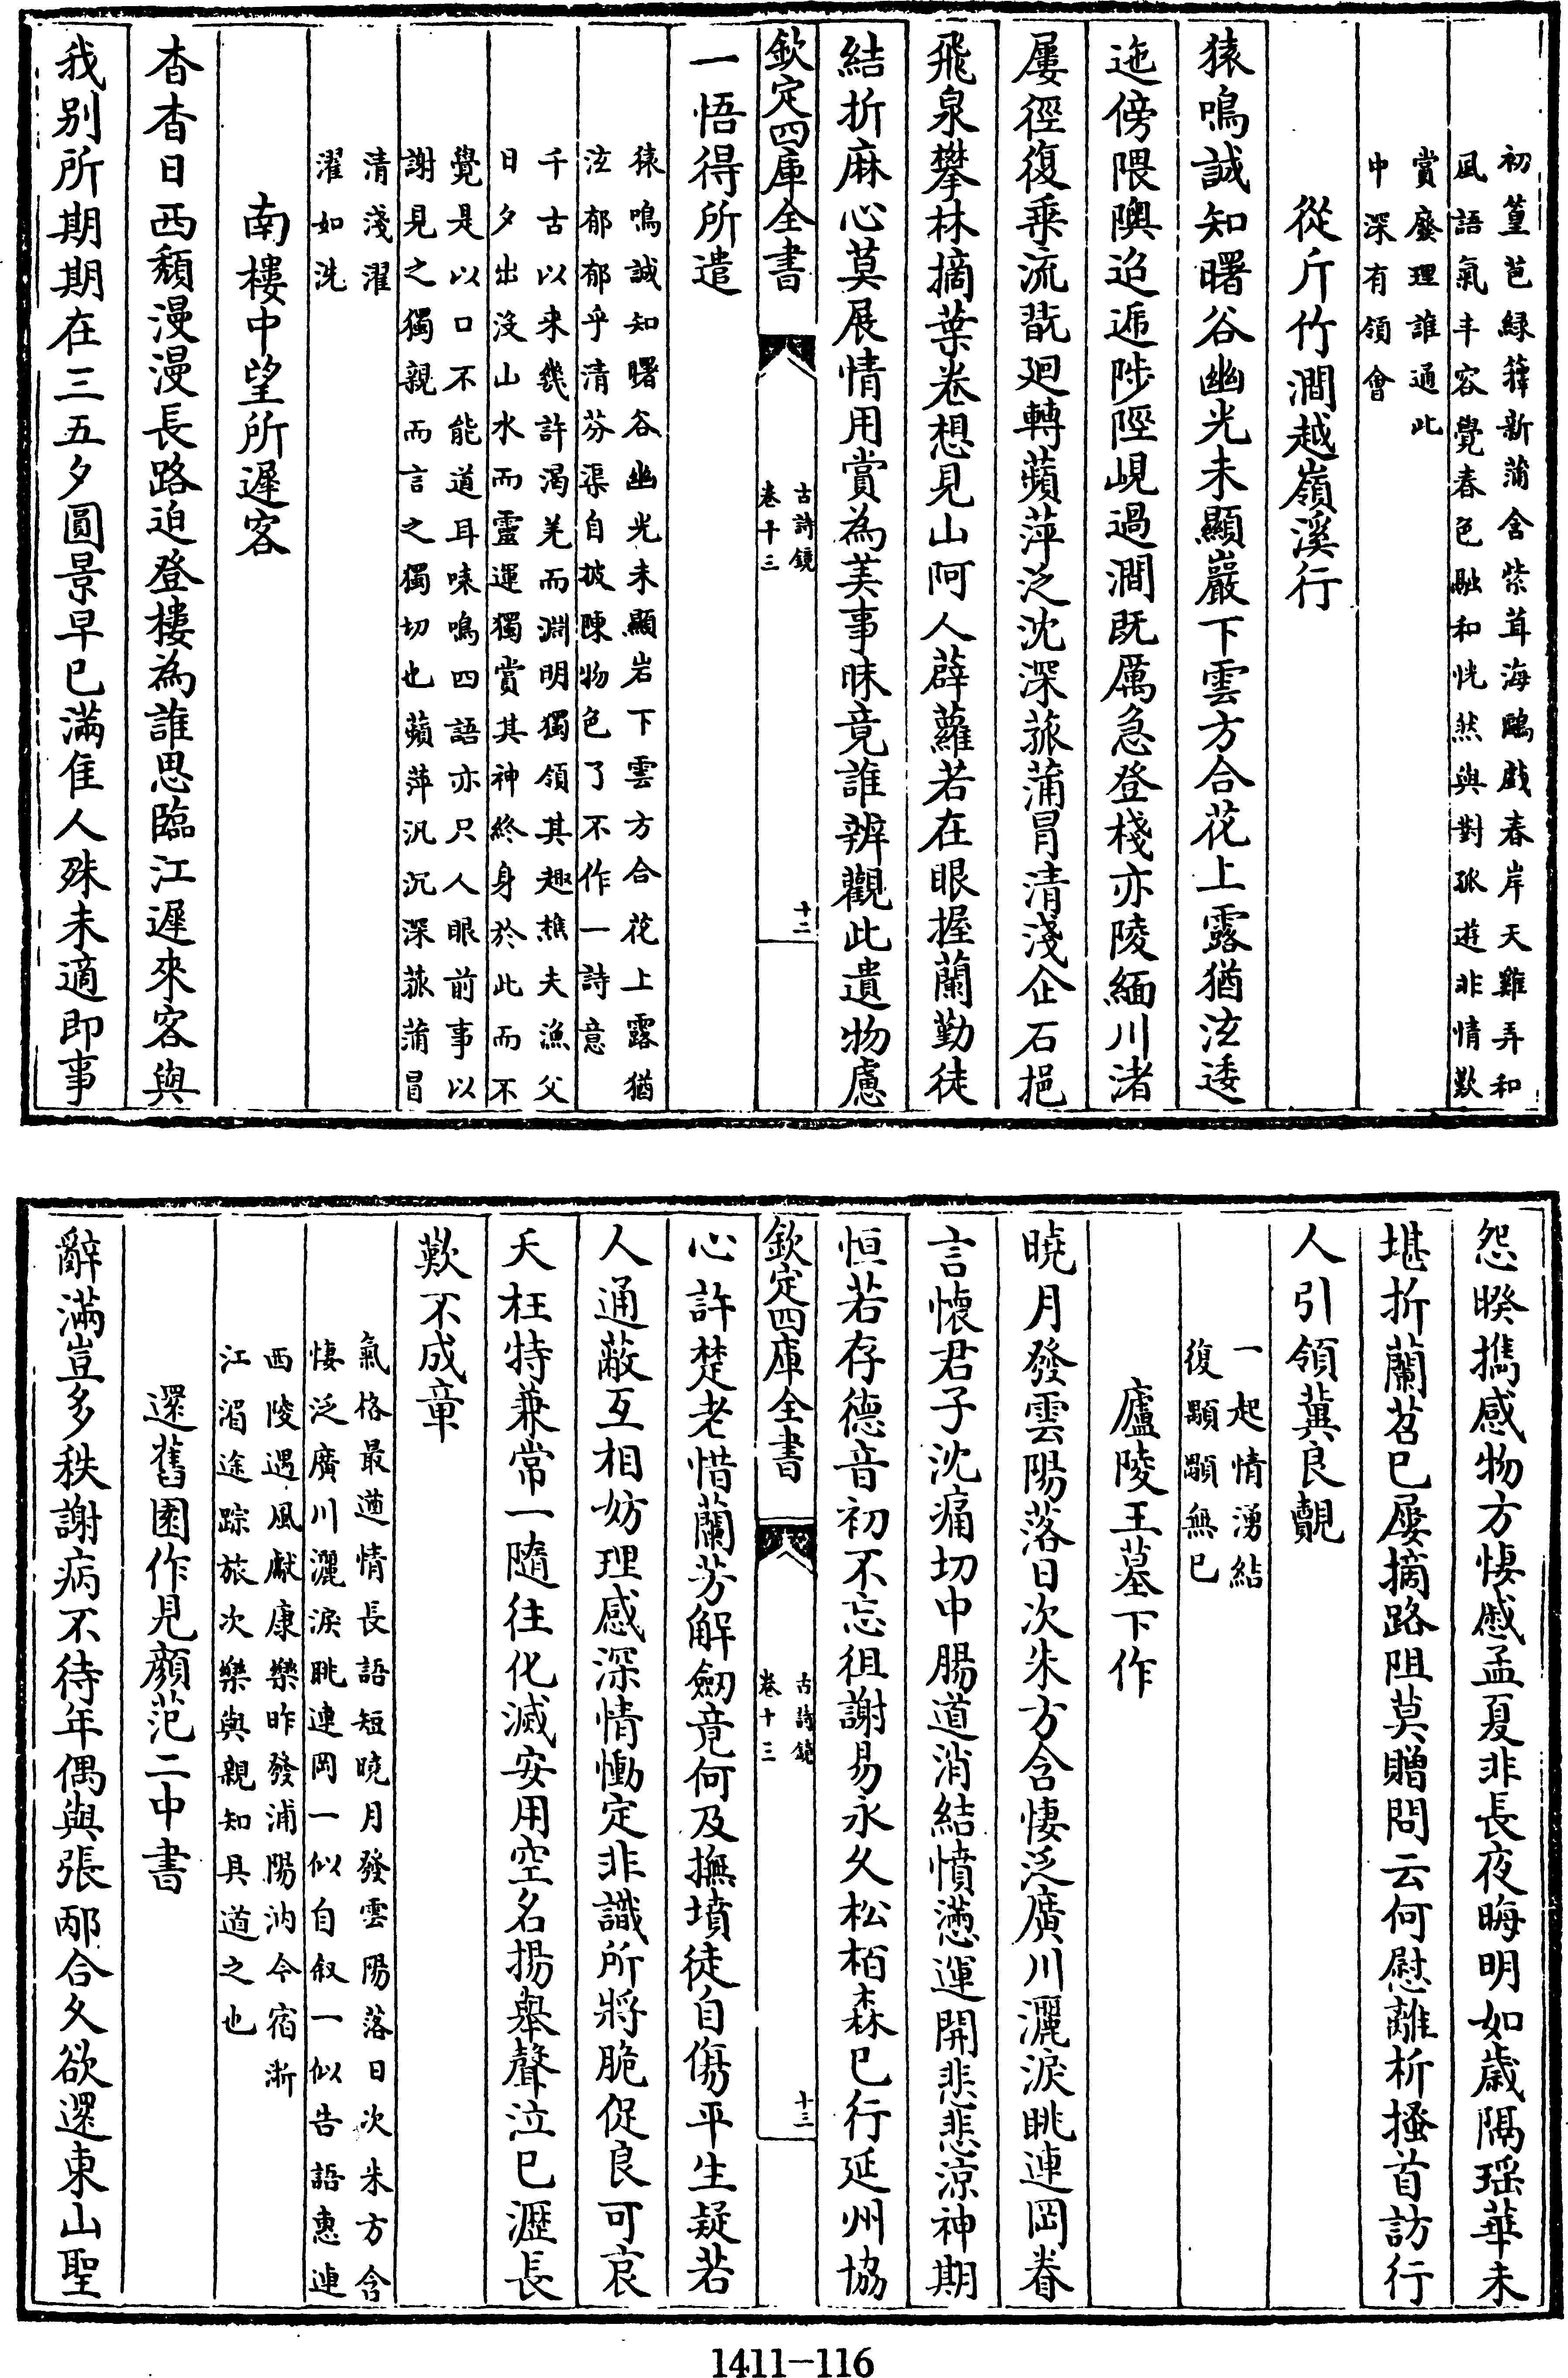 初篁苞緑籜新蒲含紫茸海鷗戲春岸天雞弄和
風語氣丰容覺春色融和恍然與對孤遊非情歎
賞廢理誰通此
中深有領會
從斤竹澗越嶺溪行
猿鳴誠知曙谷幽光未顯巖下雲方合花上露猶泫逶
迤傍隈隩迢遞陟陘峴過澗既厲急登棧亦陵緬川渚
屢徑復乗流翫廻轉蘋萍泛沈深菰蒲冒清淺企石挹
飛泉攀林摘葉卷想見山阿人薜蘿若在眼握蘭勤徒
結折麻心莫展情用賞為美事昧竟誰辨觀此遺物慮
欽定四庫全書
古詩鏡
卷十三
十二
一悟得所遣
猿鳴誠知曙谷幽光未顯岩下雲方合花上露猶
泫郁郁乎清芬渠自披陳物色了不作一詩意
千古以来幾許渴羌而淵明獨領其趣樵夫漁父
日夕出没山水而靈運獨賞其神終身於此而不
覺是以口不能道耳味鳴四語亦只人眼前事以
謝見之獨親而言之獨切也蘋萍汎沉深菰蒲冒
清淺濯
濯如洗
南樓中望所遲客
杳杳日西頹漫漫長路迫登樓為誰思臨江遲來客與
我别所期期在三五夕圓景早已滿隹人殊未適即事
怨暌攜感物方悽慼孟夏非長夜晦明如歲隔瑶華未
堪折蘭苕已屢摘路阻莫贈問云何慰離析搔首訪行
人引領冀良覿
一起情湧結
復顯顯無已
廬陵王墓下作
曉月發雲陽落日次朱方含悽泛廣川灑淚眺連岡眷
言懷君子沈痛切中腸道消結憤懣運開悲悲涼神期
恒若存德音初不忘徂謝易永久松栢森已行延州協
欽定四庫全書
古詩鏡
卷十三
十三
心許楚老惜蘭芳解劒竟何及撫墳徒自傷平生疑若
人通蔽互相妨理感深情慟定非識所將脆促良可哀
夭枉特兼常一隨往化滅安用空名揚舉聲泣已瀝長
歎不成章
氣格最遒情長語短曉月發雲陽落日次朱方含
悽泛廣川灑淚眺連岡一似自叙一似告語惠連
西陵遇風獻康樂昨發浦陽汭今宿浙
江湄途踪旅次樂與親知具道之也
還舊園作見顔范二中書
辭滿豈多秩謝病不待年偶與張邴合久欲還東山聖
1411-116